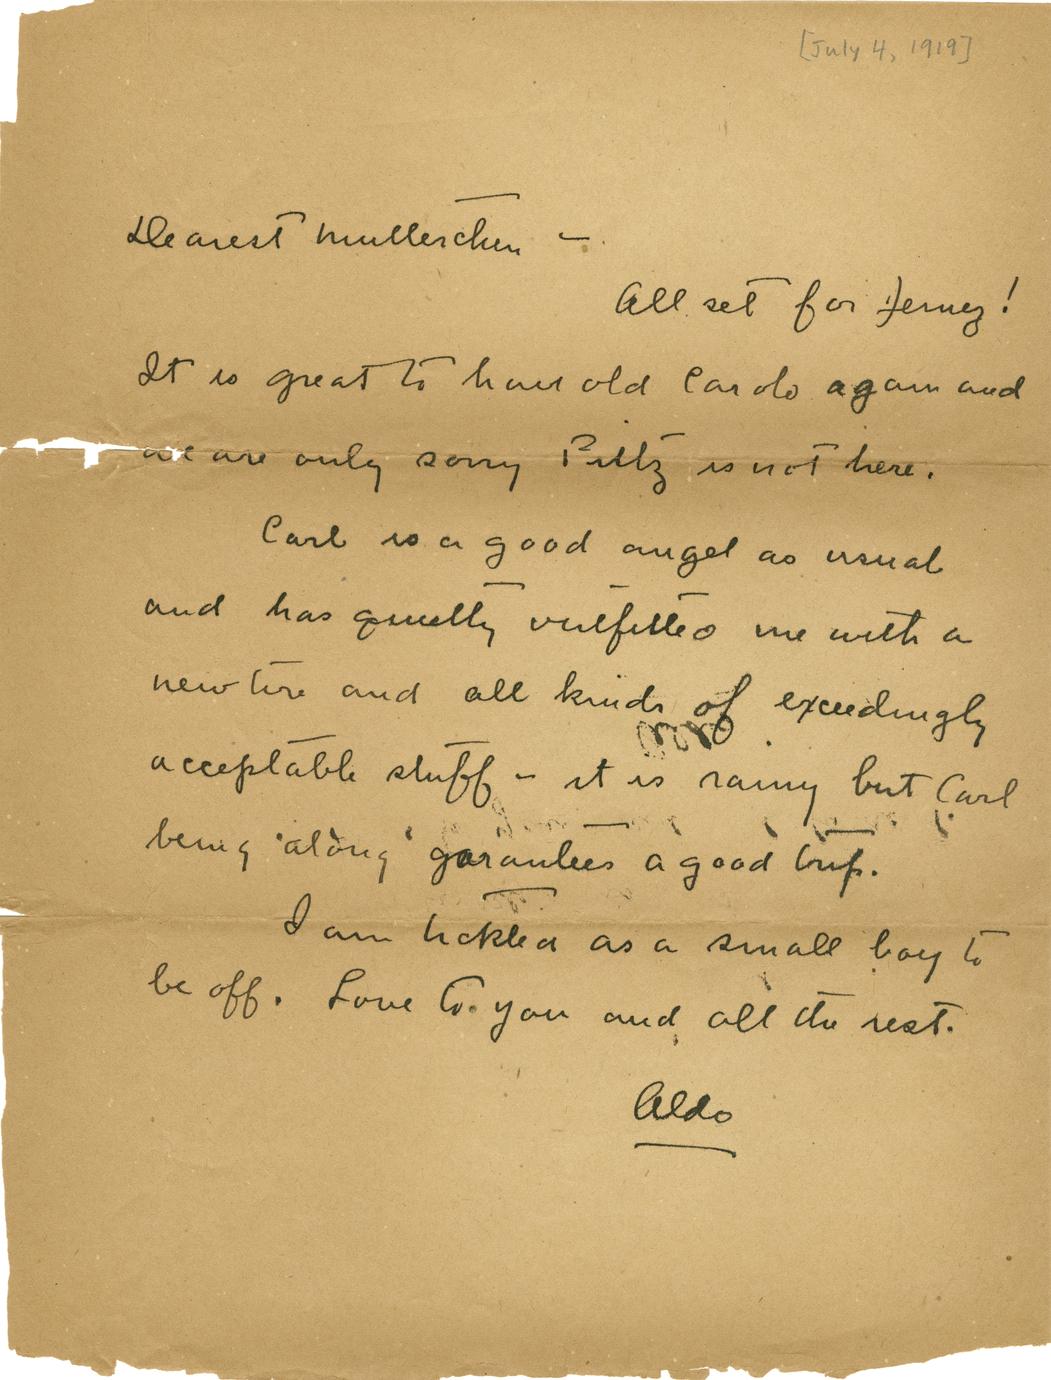 [July 4, 1919]
Dearest Mutterchen —
All set for Jemez!
It is great to have old Carolo again and
we are only sorry Fritz is not here.
Carl is a good angel as usual
and has quietly outfitted me with a
new tire and all kinds of exceedingly
acceptable stuff - it is rainy but Carl
being "along" garantees a good trip.
I am tickled as a small boy to
be off. Love to you and all the rest.
Aldo